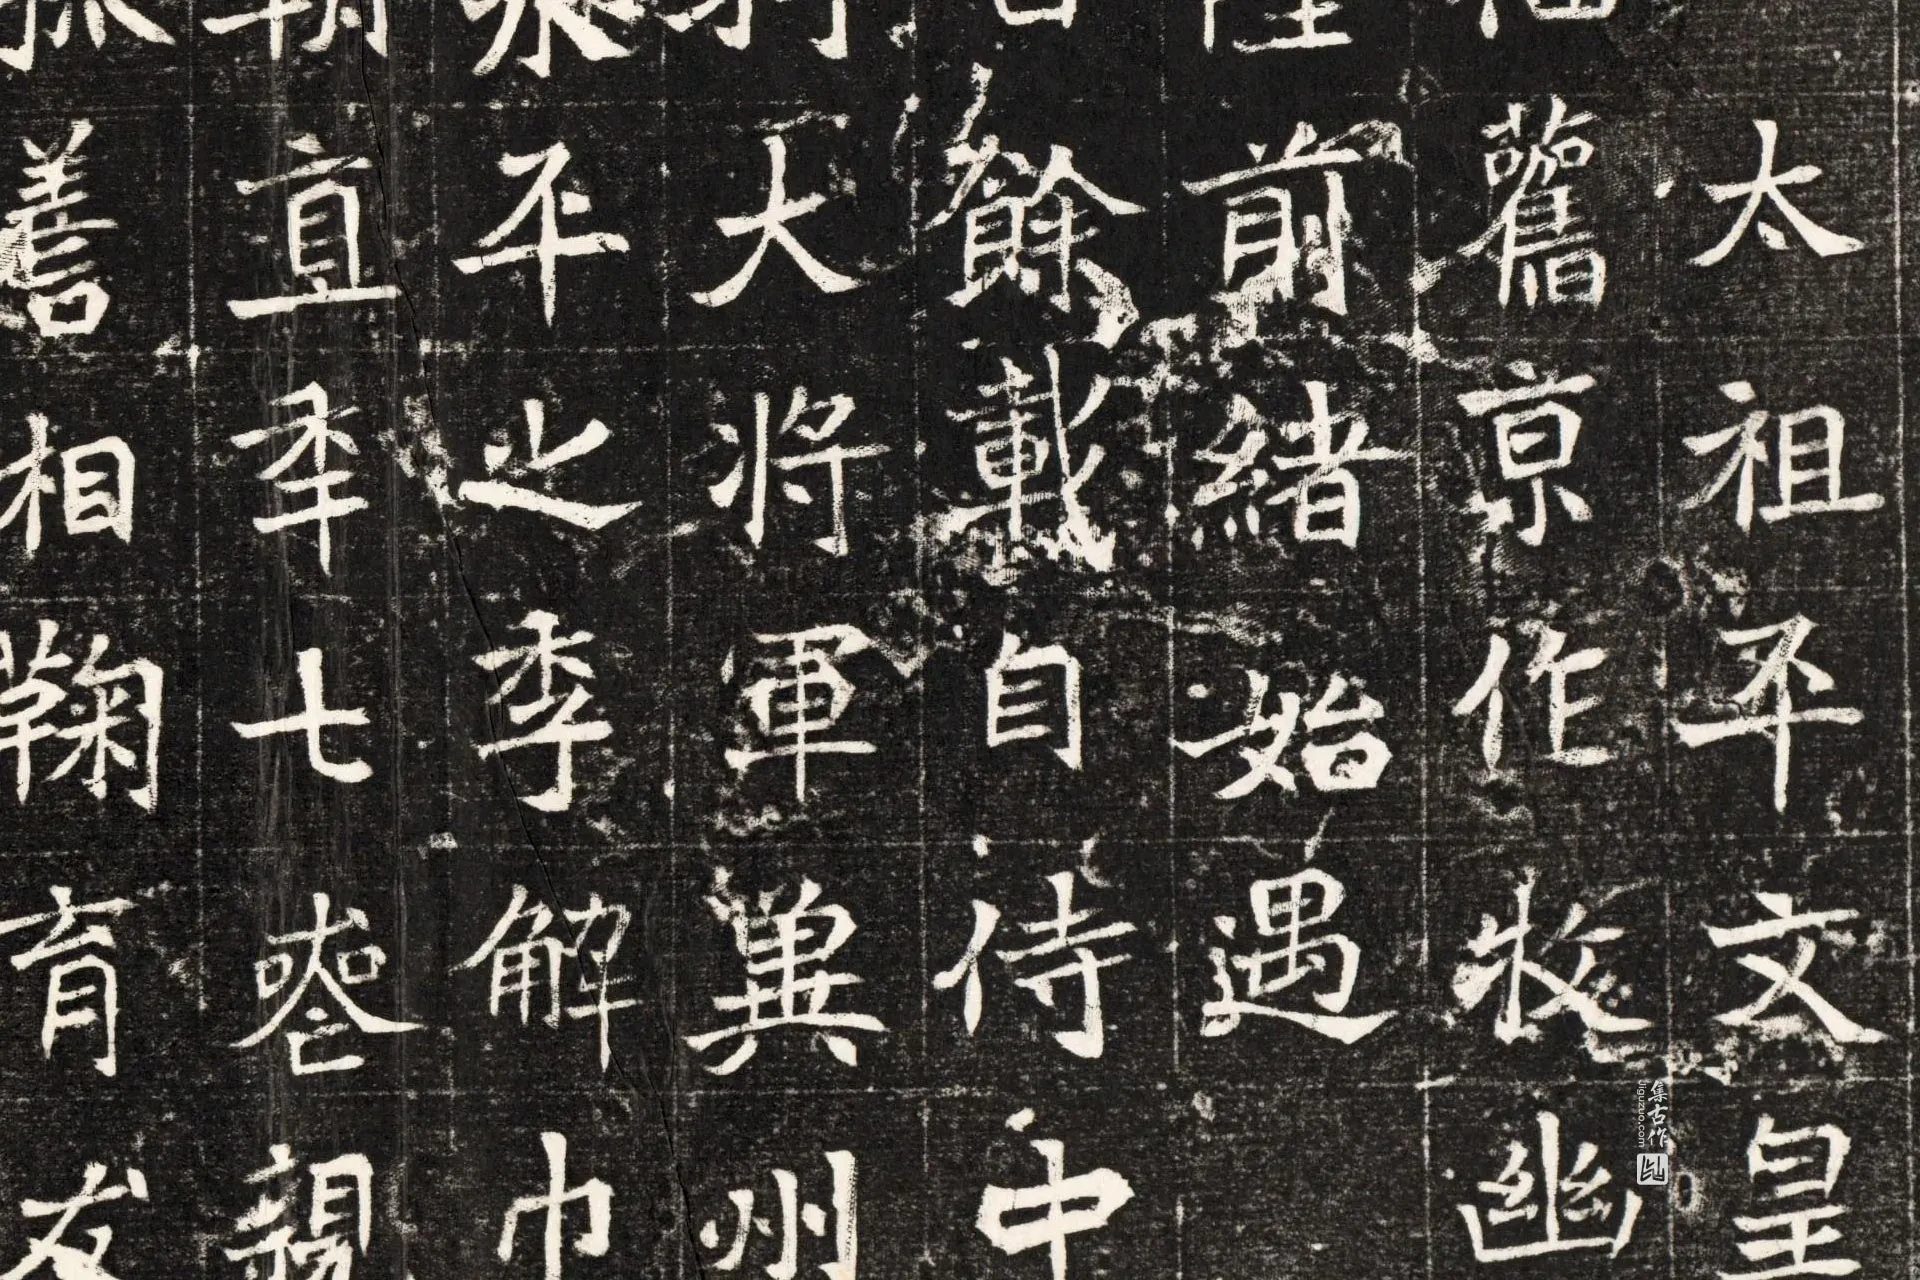 太祖平文皇
舊京作牧幽
隆前緒始遇
餘載自侍中
射大將軍冀州
永平之季解巾
朝直秊七叅親
孤善相鞠育友
集古作
jiguzuo.com